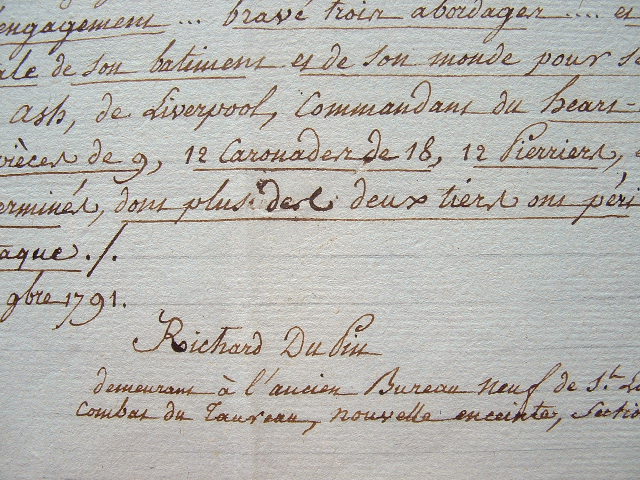 engagement ... bravé trois abordages .... et
ale de son batiment et de son monde pour se
Ash, de Liverpool, Commandant du heart-
pièces de 9, 12 Caronades de 18, 12 Pierriers,
erminés, dont plus des deux tiers ont péri
taque ./.
9bre 1791.
Richard Du Pin
demeurant à l'ancien Bureau neuf de St. L
Combat du Taureau, nouvelle enceinte, Sectio